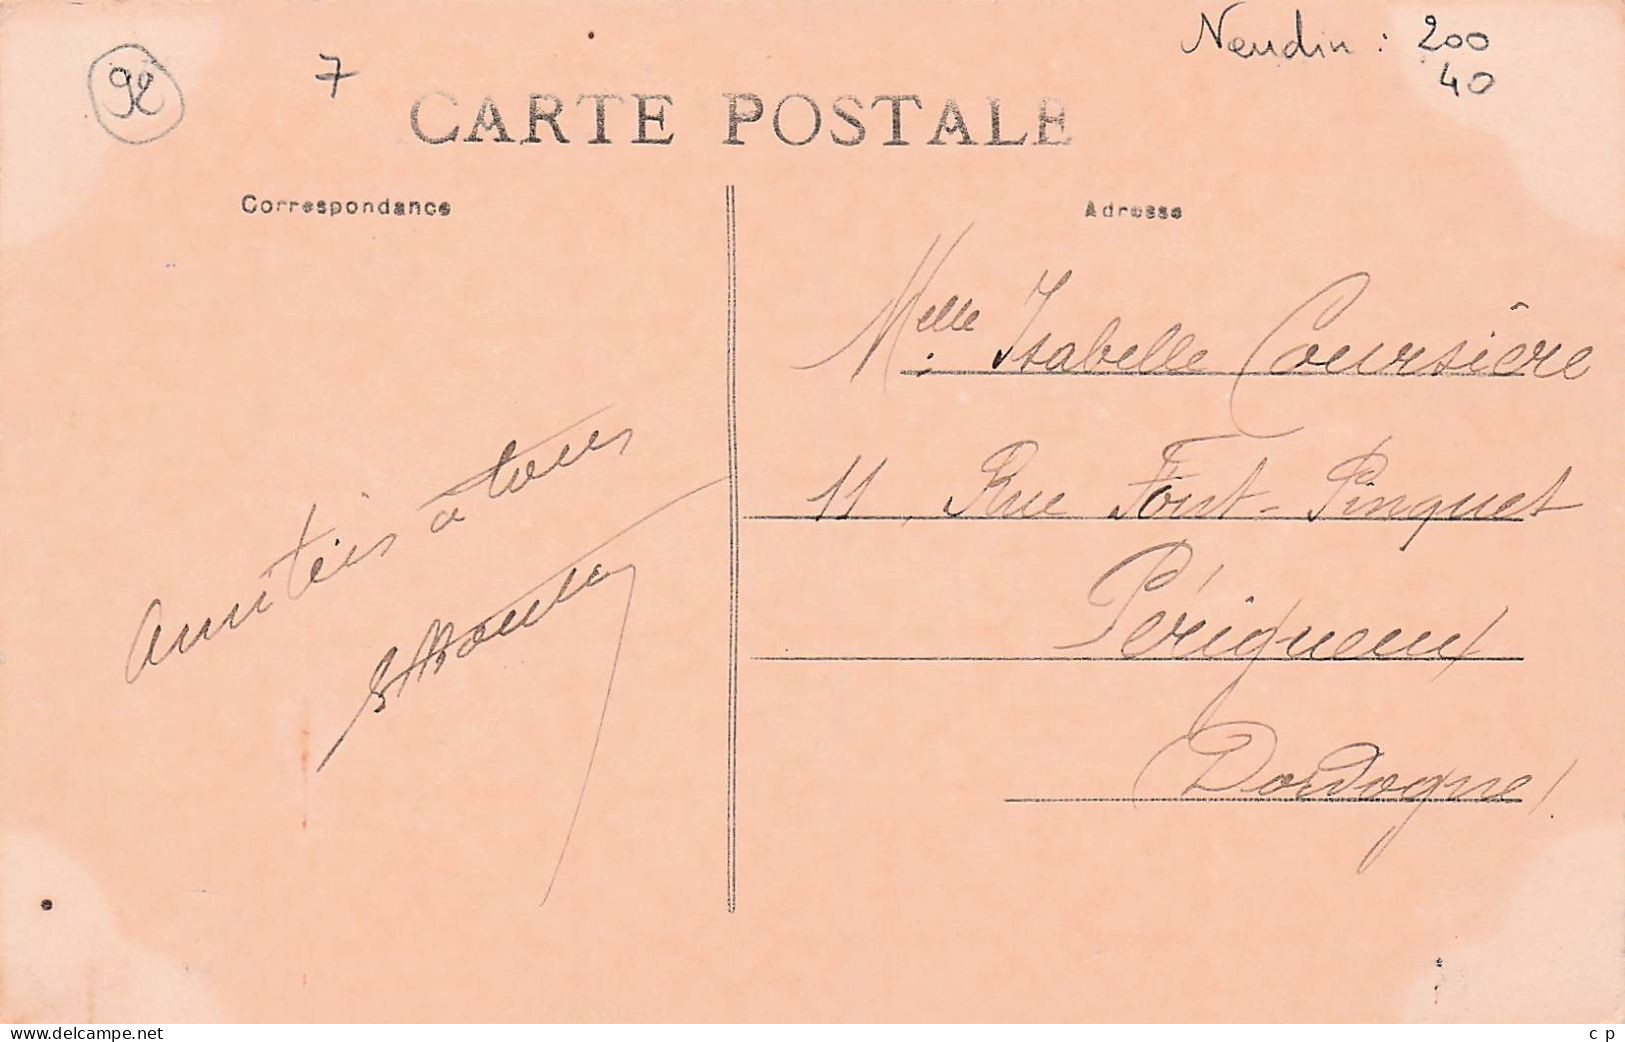 92
7
Neudin : 200
40
CARTE POSTALE
Correspondance
Adresse
Melle Isabelle Coursière
11, Rue Font-Pinquet
Périgueux
(Dordogne)
amitiés à tous
www.delcampe.net
c p